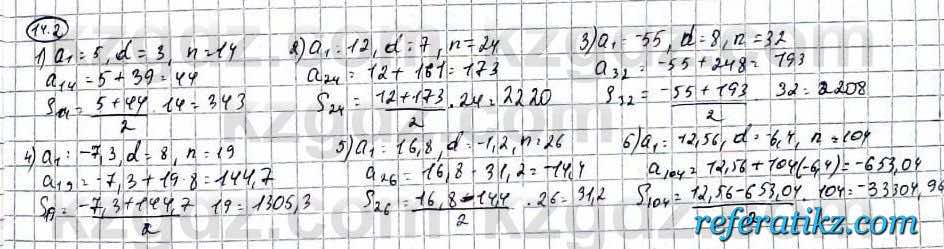 14.2
1) a₁ = 5, d = 3, n = 14
a₁₄ = 5 + 39 = 44
S₁₄ = (5 + 44)/2 · 14 = 343
2) a₁ = 12, d = 7, n = 24
a₂₄ = 12 + 161 = 173
S₂₄ = (12 + 173)/2 · 24 = 2220
3) a₁ = -55, d = 8, n = 32
a₃₂ = -55 + 248 = 193
S₃₂ = (-55 + 193)/2 · 32 = 2208
4) a₁ = -7,3, d = 8, n = 19
a₁₉ = -7,3 + 19·8 = 144,7
S₁₉ = (-7,3 + 144,7)/2 · 19 = 1305,3
5) a₁ = 16,8, d = -1,2, n = 26
a₂₆ = 16,8 - 31,2 = -14,4
S₂₆ = (16,8 - 14,4)/2 · 26 = 31,2
6) a₁ = 12,56, d = -6,4, n = 104
a₁₀₄ = 12,56 + 104(-6,4) = -653,04
S₁₀₄ = (12,56 - 653,04)/2 · 104 = -33304,96
referatikz.com